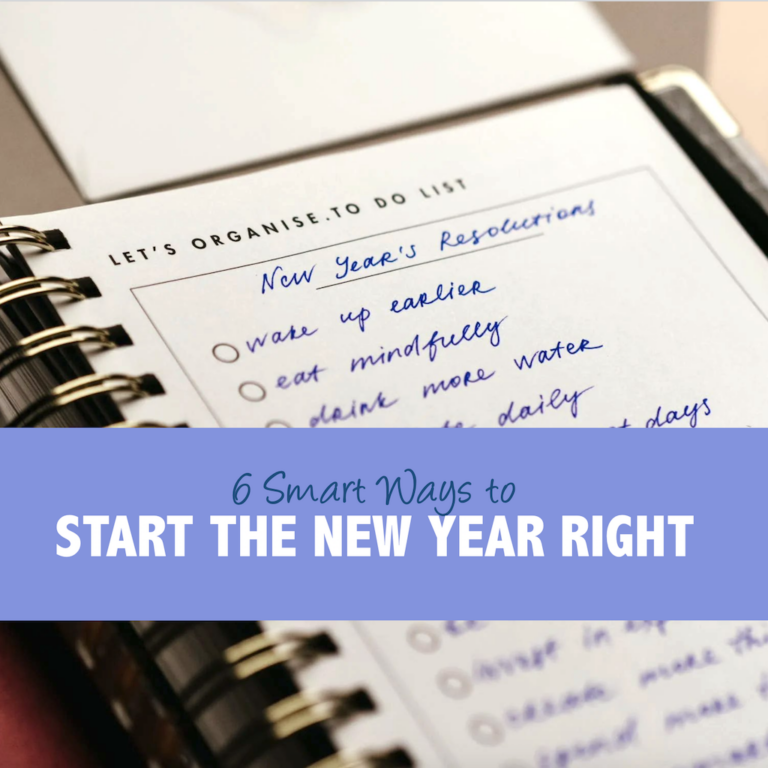 LET'S ORGANISE.TO DO LIST
New Year's Resolutions
wake up earlier
eat mindfully
drink more water
daily
days
6 Smart Ways to
START THE NEW YEAR RIGHT
invest in
create more
spend more